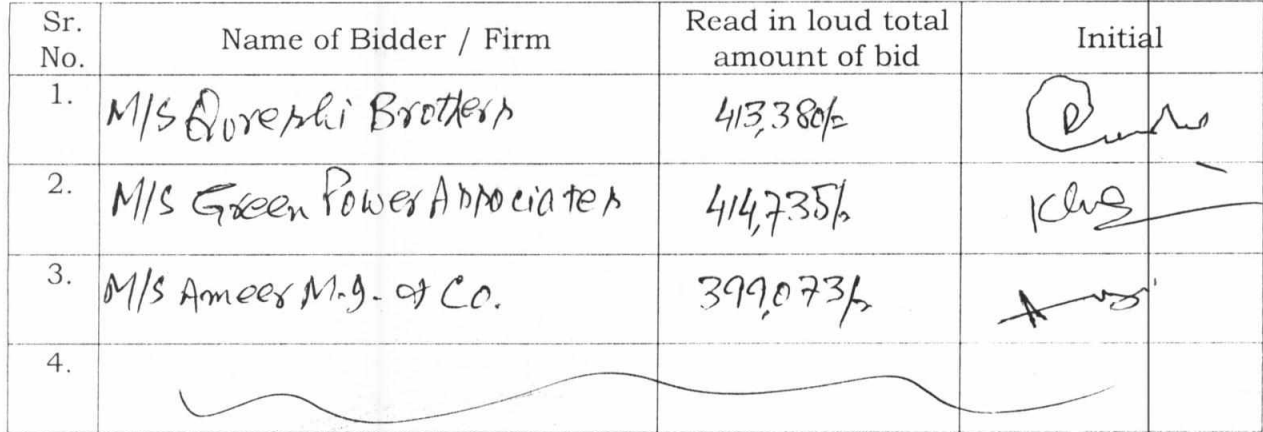 Sr. No. Name of Bidder / Firm Read in loud total amount of bid Initial
1. M/S Qureshi Brothers 413,380/=
2. M/S Green Power Associates 414,735/=
3. M/S Ameer M.J. & Co. 399,073/=
4.